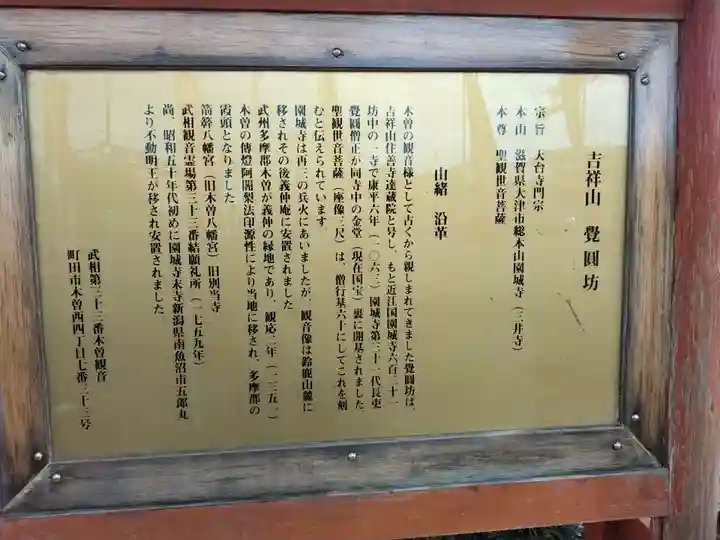 吉祥山　覺圓坊
宗旨　天台寺門宗
本山　滋賀県大津市総本山園城寺（三井寺）
本尊　聖観世音菩薩
由緒　沿革
木曽の観音様として古くから親しまれてきました覺圓坊は、
吉祥山住善寺達蔵院と号し、もと近江国園城寺六百二十一
坊中の一寺で康平六年（一〇六三）園城寺第三十一代長吏
覺圓僧正が同寺中の金堂（現在国宝）裏に開基されました
聖観世音菩薩（座像三尺）は、僧行基六十にしてこれを刻
むと伝えられています
園城寺は再三の兵火にあいましたが、観音像は鈴鹿山麓に
移されその後義仲庵に安置されました
武州多摩郡木曽が義仲の縁地であり、観応二年（一三五一）
木曽の傳燈阿闍梨法印源性により当地に移され、多摩郡の
霞頭となりました
箭幹八幡宮（旧木曽八幡宮）旧別当寺
武相観音霊場第三十三番結願礼所（一七五九年）
尚、昭和五十年代初めに園城寺末寺新潟県南魚沼市五郎丸
より不動明王が移され安置されました
武相第三十三番木曽観音
町田市木曽西四丁目七番三十三号